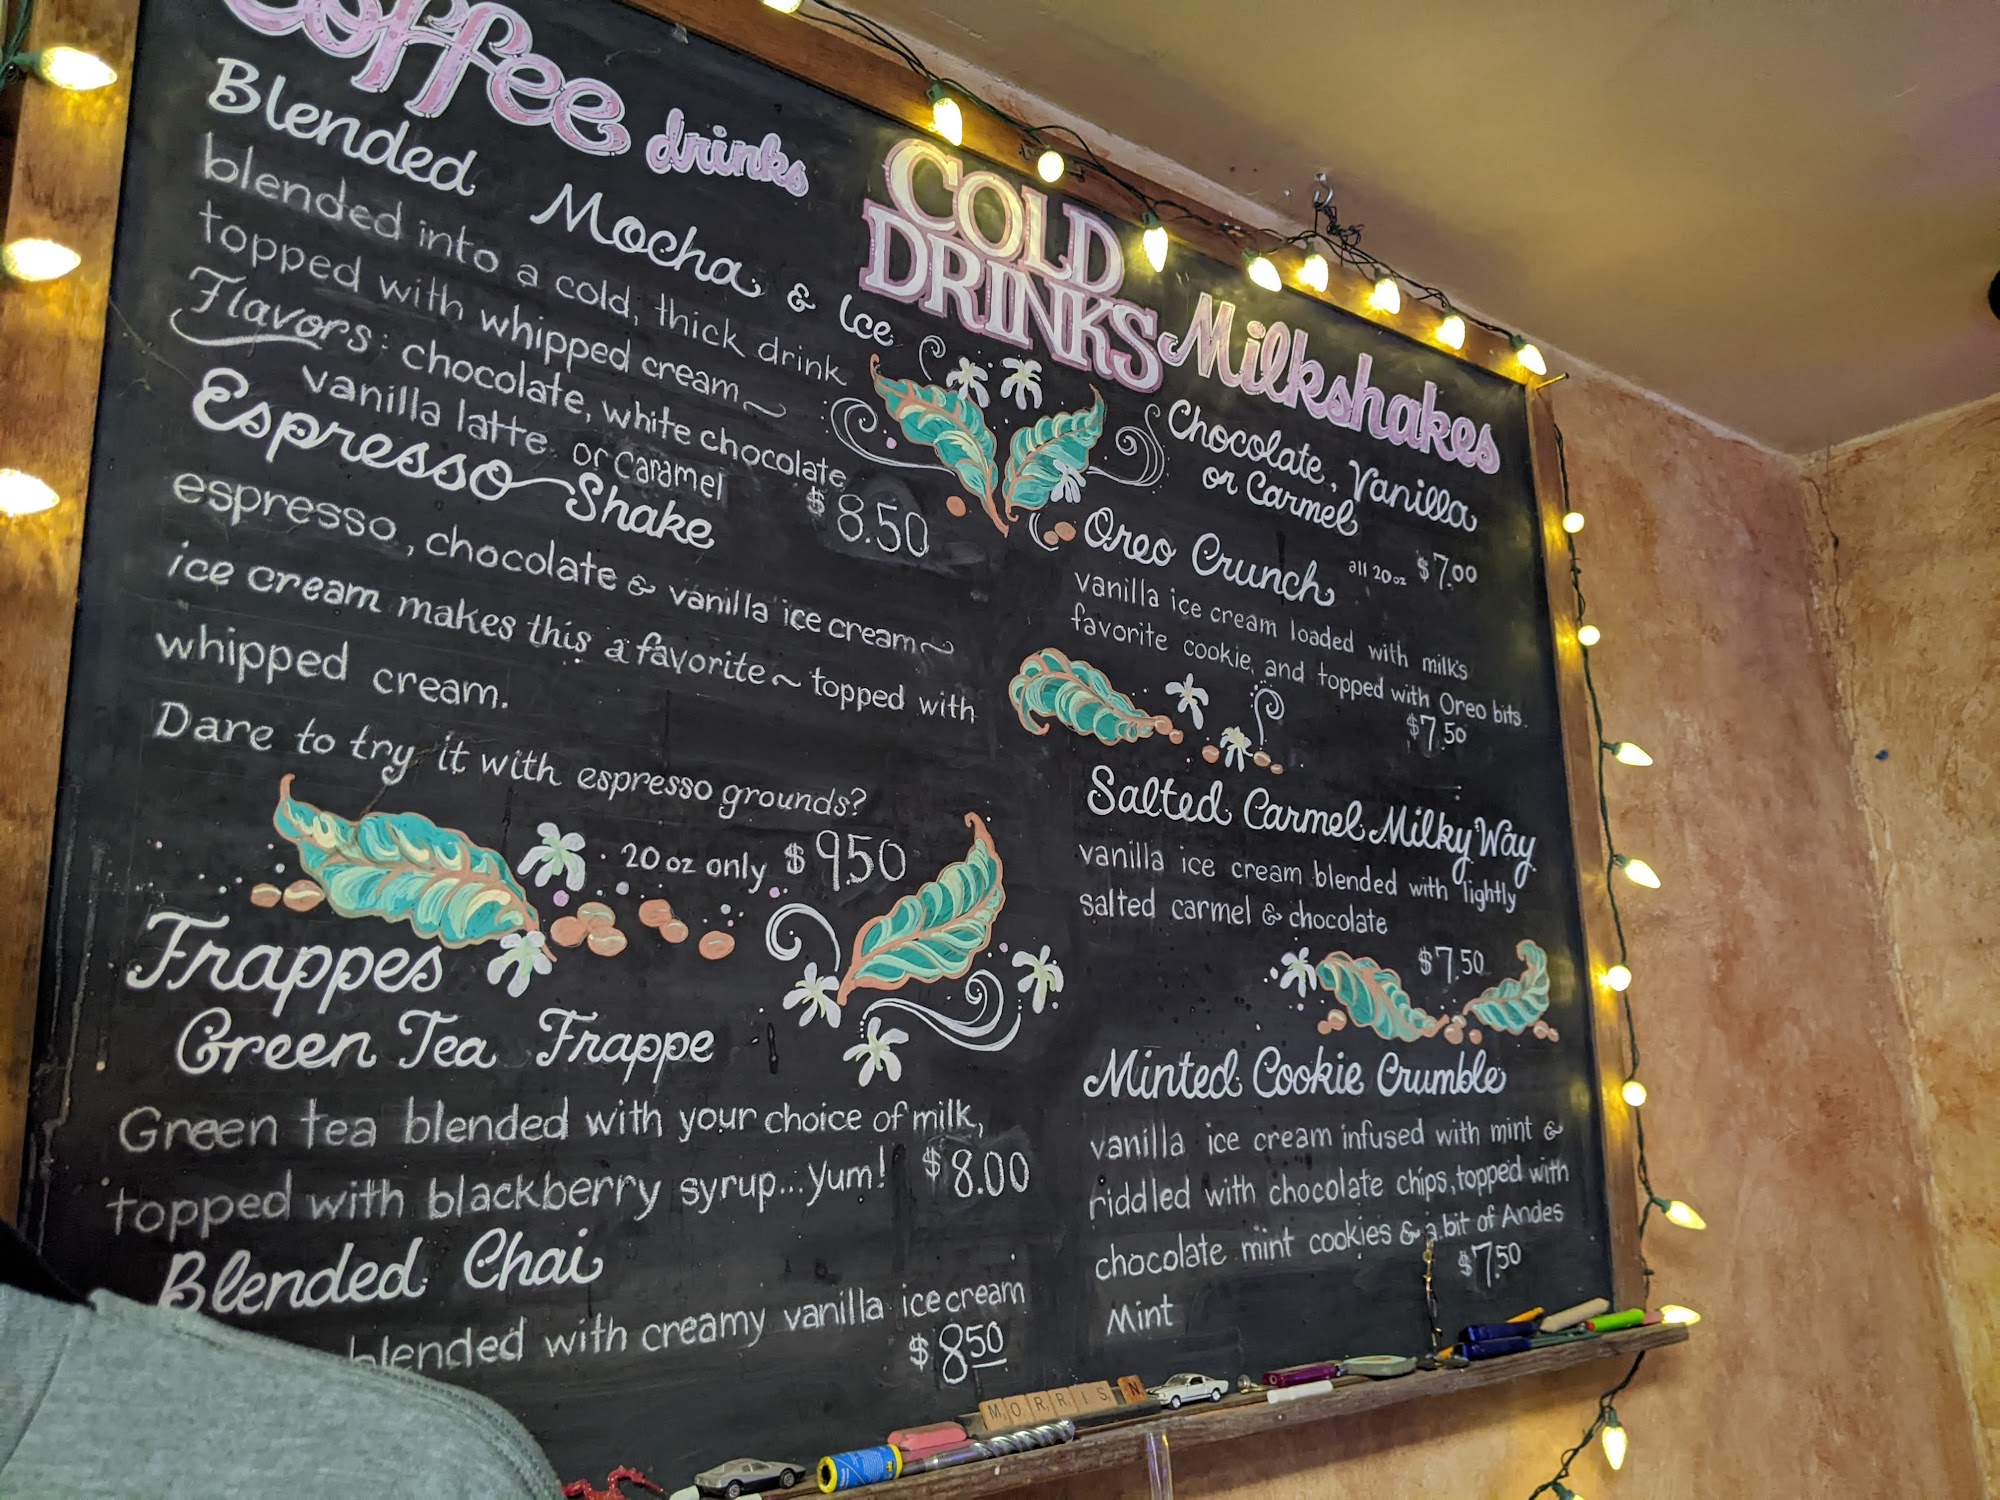 Coffee drinks
Blended Mocha & Ice
blended into a cold, thick drink
topped with whipped cream~
Flavors: chocolate, white chocolate
vanilla latte or Caramel
$8.50
Espresso Shake
espresso, chocolate & vanilla ice cream~
ice cream makes this a favorite~ topped with
whipped cream.
Dare to try it with espresso grounds?
20 oz only $9.50
Frappes
Green Tea Frappe
Green tea blended with your choice of milk,
topped with blackberry syrup...Yum! $8.00
Blended Chai
blended with creamy vanilla ice cream
$8.50
COLD
DRINKS
Milkshakes
Chocolate, Vanilla
or Carmel
all 20 oz $7.00
Oreo Crunch
vanilla ice cream loaded with milk's
favorite cookie, and topped with Oreo bits.
$7.50
Salted Carmel Milky Way
vanilla ice cream blended with lightly
salted carmel & chocolate
$7.50
Minted Cookie Crumble
vanilla ice cream infused with mint &
riddled with chocolate chips, topped with
chocolate mint cookies & a bit of Andes
Mint
$7.50
MORRISN